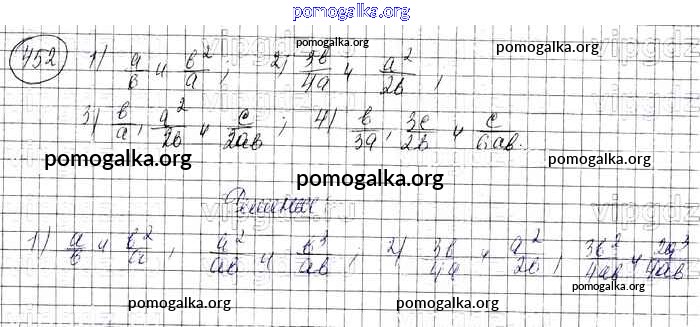 pomogalka.org
452 1) a/b и b²/a, 2) 3b/4a и a²/2b,
pomogalka.org pomogalka.org
3) b/a, a²/2b и c/2ab; 4) b/3a, 3c/2b и c/6ab.
pomogalka.org pomogalka.org
pomogalka.org
Решение:
1) a/b и b²/a, a²/ab и b³/ab, 2) 3b/4a и a²/2b, 3b²/4ab и 2a³/4ab
pomogalka.org pomogalka.org pomogalka.org